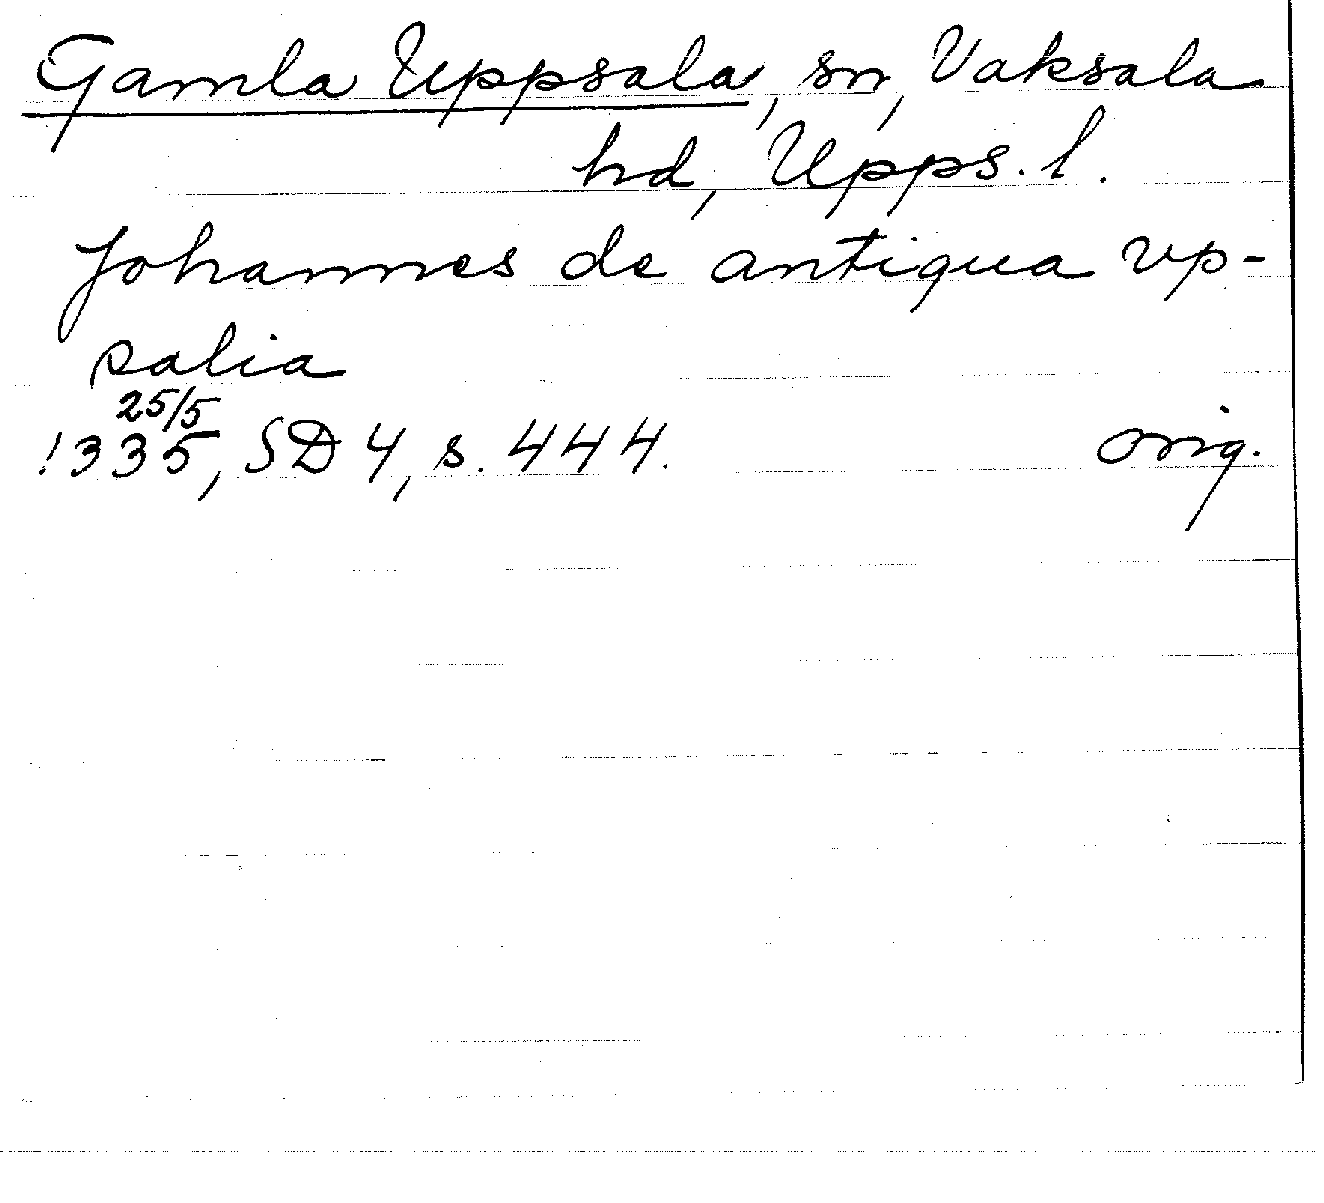 Gamla Uppsala, sn, Vaksala
hd, Upps. l.
Johannes de antiqua vp-
salia
25/5
1335, SD 4, s. 444. orig.